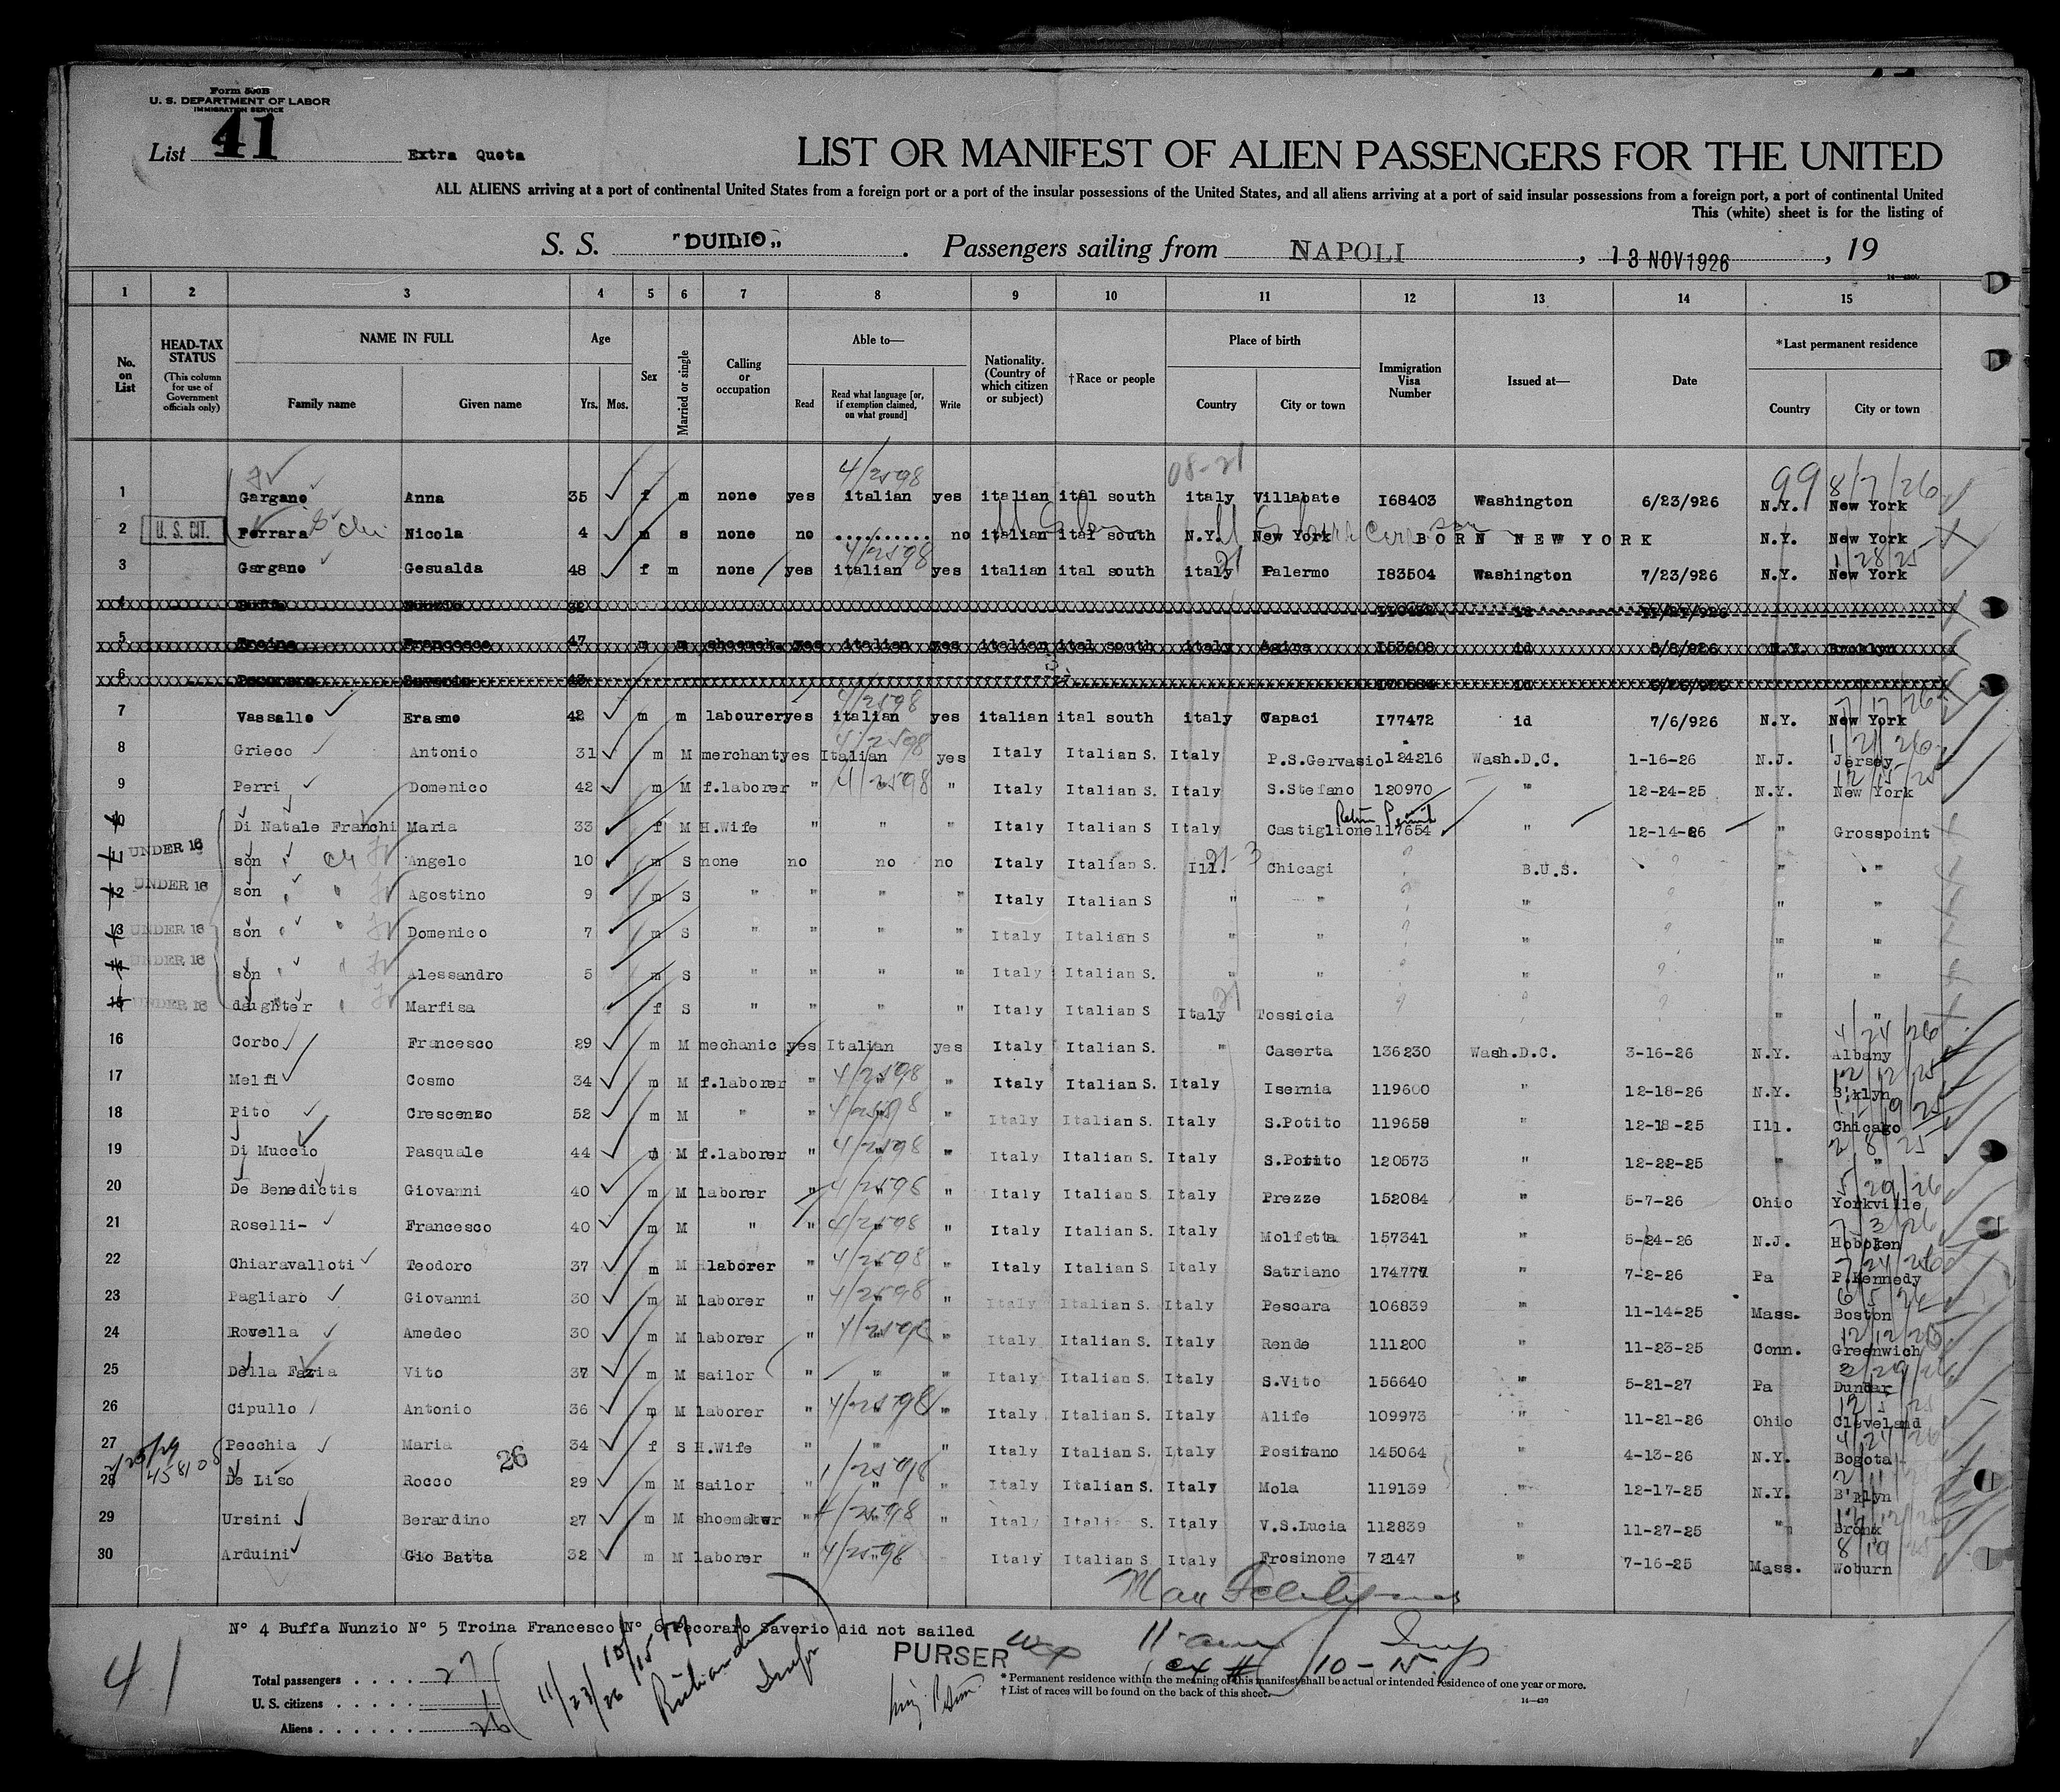 Form 500B
U. S. DEPARTMENT OF LABOR
IMMIGRATION SERVICE
List 41 Extra Quota
LIST OR MANIFEST OF ALIEN PASSENGERS FOR THE UNITED
ALL ALIENS arriving at a port of continental United States from a foreign port or a port of the insular possessions of the United States, and all aliens arriving at a port of said insular possessions from a foreign port, a port of continental United
This (white) sheet is for the listing of
S. S. "DUILIO„ . Passengers sailing from NAPOLI , 13 NOV 1926 , 19
1 2 3 4 5 6 7 8 9 10 11 12 13 14 15
No. on List HEAD-TAX STATUS (This column for use of Government officials only) NAME IN FULL Family name Given name Age Yrs. Mos. Sex Married or single Calling or occupation Able to— Read Read what language [or, if exemption claimed, on what ground] Write Nationality. (Country of which citizen or subject) †Race or people Place of birth Country City or town Immigration Visa Number Issued at— Date *Last permanent residence Country City or town
1 Gargano Anna 35 f m none yes 4/2598 italian yes italian ital south italy Villabate I68403 Washington 6/23/926 N.Y. 99 8/7/26 New York
2 U.S. CIT. Ferrara Nicola 4 m s none no .......... no italian ital south N.Y. New York BORN NEW YORK N.Y. New York
3 Gargano Gesualda 48 f m none yes 4/2598 italian yes italian ital south italy Palermo I83504 Washington 7/23/926 N.Y. 1/28/25 New York
4 Buffa Nunzio 32 id
5 Troina Francesco 47 m m shoemak. yes italian yes italian ital south italy Agira I53608 id 5/8/926 N.Y. Brooklyn
6 Pecoraro Saverio 43 id
7 Vassallo Erasmo 42 m m labourer yes 4/2598 italian yes italian ital south italy Capaci I77472 id 7/6/926 N.Y. 7/17/26 New York
8 Grieco Antonio 31 m M merchant yes 4/2598 Italian yes Italy Italian S. Italy P.S.Gervasio 124216 Wash.D.C. 1-16-26 N.J. 1/21/26 Jersey
9 Perri Domenico 42 m M f.laborer " 4/2598 " Italy Italian S. Italy S.Stefano 120970 " 12-24-25 N.Y. 12/15/25 New York
10 Di Natale Franchi Maria 33 f M H.Wife " " " Italy Italian S Italy Castiglione 117654 Return Permit " 12-14-26 " Grosspoint
11 UNDER 16 son " Angelo 10 m S none no no no Italy Italian S. Ill. Chicagi ? B.U.S. ? " "
12 UNDER 16 son " " Agostino 9 m S " " " " Italy Italian S " " ? " ? " "
13 UNDER 16 son " " Domenico 7 m S " " " " Italy Italian S " " ? " ? " "
14 UNDER 16 son " " Alessandro 5 m S " " " " Italy Italian S. " " ? " ? " "
15 UNDER 16 daughter " Marfisa f S " " " " Italy Italian S Italy Tossicia ? ? ? " "
16 Corbo Francesco 29 m M mechanic yes Italian yes Italy Italian S. " Caserta 136230 Wash.D.C. 3-16-26 N.Y. 4/24/26 Albany
17 Melfi Cosmo 34 m M f.laborer " 4/2598 " Italy Italian S. Italy Isernia 119600 " 12-18-26 N.Y. 12/12/25 B'klyn
18 Pito Crescenzo 52 m M " " 4/2598 " Italy Italian S. Italy S.Potito 119658 " 12-18-25 Ill. Chicago
19 Di Muccio Pasquale 44 m M f.laborer " 4/2598 " Italy Italian S. Italy S.Potito 120573 " 12-22-25 " 2/8/25 "
20 De Benedictis Giovanni 40 m M laborer " 4/2598 " Italy Italian S. Italy Prezze 152084 " 5-7-26 Ohio 5/29/26 Yorkville
21 Roselli- Francesco 40 m M " " 4/2598 " Italy Italian S. Italy Molfetta 157341 " 5-24-26 N.J. 7/3/26 Hoboken
22 Chiaravalloti Teodoro 37 m M laborer " 4/2598 " Italy Italian S. Italy Satriano 174777 " 7-2-26 Pa 7/24/26 P.Kennedy
23 Pagliaro Giovanni 30 m M laborer " 4/2598 " Italy Italian S. Italy Pescara 106839 " 11-14-25 Mass. Boston
24 Rovella Amedeo 30 m M laborer " 4/2598 " Italy Italian S. Italy Rende 111200 " 11-23-25 Conn. 12/12/25 Greenwich
25 Della Fazia Vito 37 m M sailor " " " Italy Italian S. Italy S.Vito 156640 " 5-21-27 Pa Dunbar
26 Cipullo Antonio 36 m M laborer " 4/2598 " Italy Italian S. Italy Alife 109973 " 11-21-26 Ohio Cleveland
27 Pecchia Maria 34 f S H.Wife " " " Italy Italian S. Italy Positano 145064 " 4-13-26 N.Y. 4/24/26 Bogota
28 De Liso Rocco 26 29 m M sailor " " " Italy Italian S. Italy Mola 119139 " 12-17-25 N.Y. B'klyn
29 Ursini Berardino 27 m M shoemaker " 4/2598 " Italy Italian S. Italy V.S.Lucia 112839 " 11-27-25 " Bronx
30 Arduini Gio Batta 32 m M laborer " 4/2598 Italy Italian S Italy Frosinone 72147 " 7-16-25 Mass. Woburn
N° 4 Buffa Nunzio N° 5 Troina Francesco N° 6 Pecoraro Saverio did not sailed
PURSER
41
Total passengers . . . . 27
U. S. citizens . . . . .
Aliens . . . . . . 26
11/23/26
10-15
* Permanent residence within the meaning of this manifest shall be actual or intended residence of one year or more.
† List of races will be found on the back of this sheet.
14—430